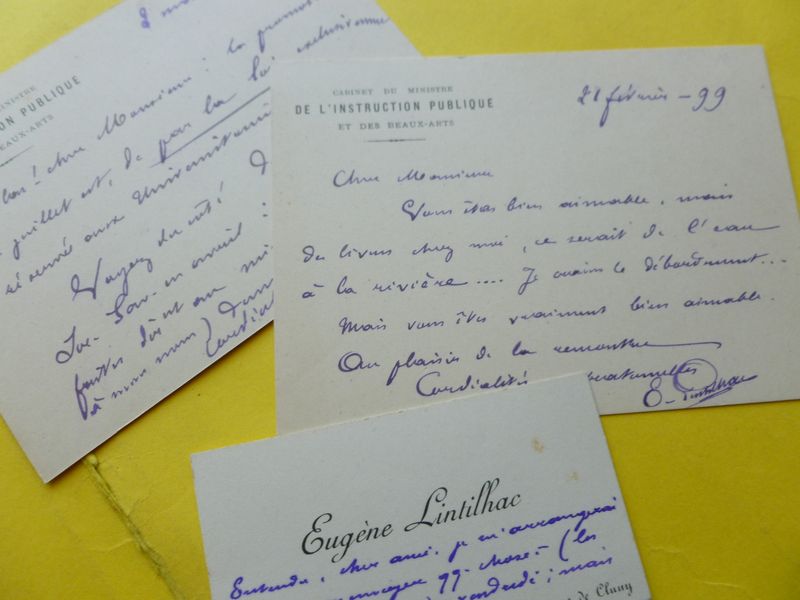 MINISTRE
CTION PUBLIQUE
EAUX-ARTS
cher Monsieur : la
juillet est, de par la loi exclusivement
réservée aux Universitaires
Voyez du côté
à mon nom)
CABINET DU MINISTRE
DE L'INSTRUCTION PUBLIQUE
ET DES BEAUX-ARTS
21 février - 99
Cher Monsieur
Vous êtes bien aimable, mais
des livres chez moi, ce serait de l'eau
à la rivière.... Je crains le débordement...
Mais vous êtes vraiment bien aimable.
Au plaisir de la rencontre
Cordialités
E. Lintilhac
Eugène Lintilhac
Entendu, cher ami, je m'arrangerai
envoyer qq. chose (les
vendredi ; mais
de Cluny